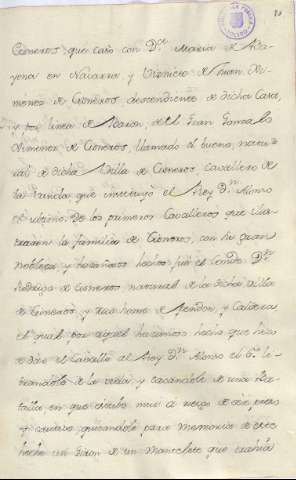 Cisneros, que casó con D.ª Maria de Ba
yona en Navarra, y Viznieto de Simon Xi
menez de Cisneros, descendiente de dicha Casa,
y por linea de Varon, del Gran Gonzalo
Ximenez de Cisneros, llamado el bueno, natu
ral de dicha Villa de Cisneros, cavallero de
la Vanda que instituyó el Rey D.n Alonso
el ultimo. De los primeros Cavalleros que ilus
traron la familia de Cisneros, con su gran
nobleza, y hazañosos hechos fue el Conde D.n
Rodrigo de Cisneros natural de la dicha Villa
de Cisneros, y rico home de Pendon, y Caldera
el qual por aquel hazañoso hecho que hizo
de dar el Cavallo al Rey D.n Alonso el 6.º li
brandole de la vida, y sacandole de una Ba
talla en que estaba
y estuvo quitandole para memoria de este
hecho un Giron de un Manteleto que trahia